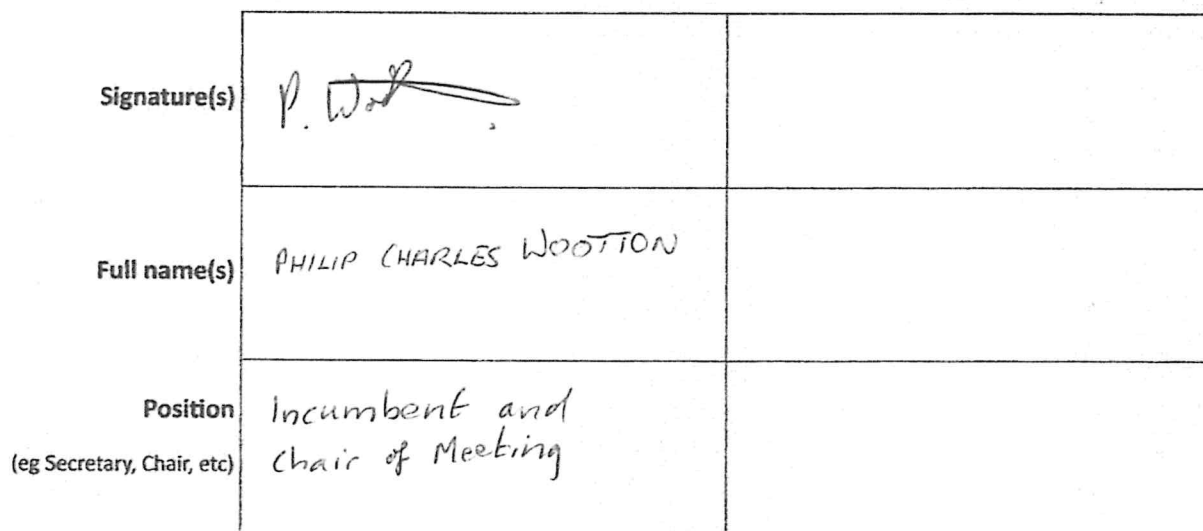 Signature(s)
P. Woot
Full name(s)
PHILIP CHARLES WOOTTON
Position
(eg Secretary, Chair, etc)
Incumbent and
Chair of Meeting